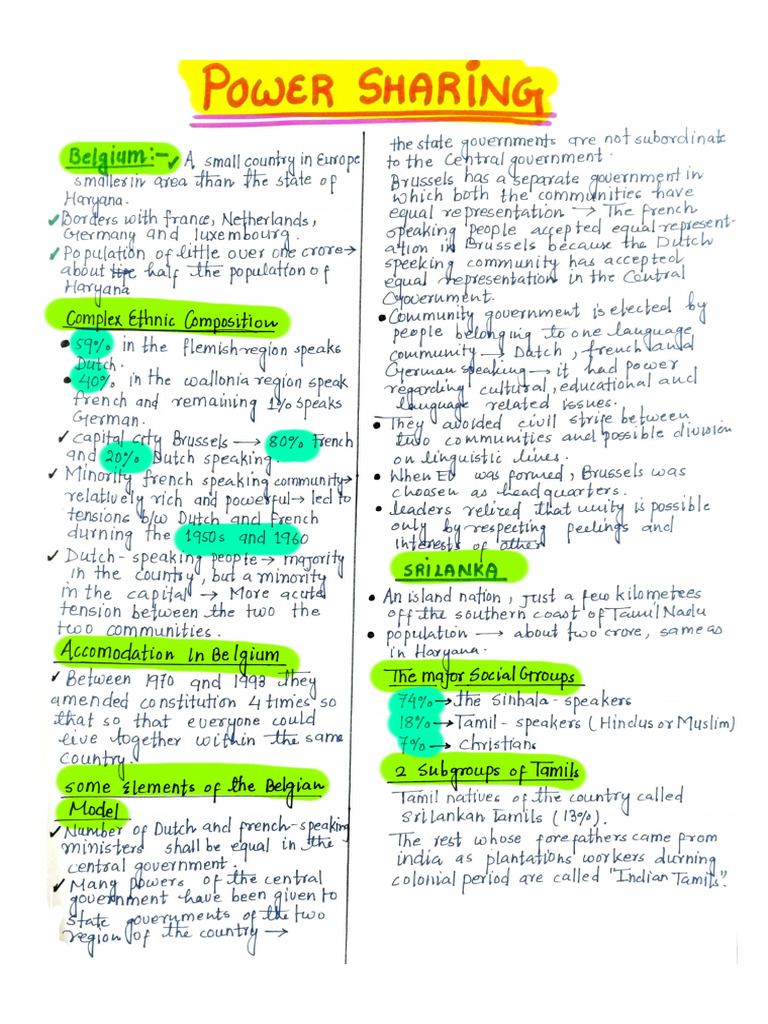 POWER SHARING
Belgium:- ✓ A small country in Europe
smaller in area than the state of
Haryana.
✓ Borders with france, Netherlands,
Germany and luxembourg.
✓ Population of little over one crore →
about half the population of
Haryana
Complex Ethnic Composition
• 59% in the flemish region speaks
Dutch.
• 40% in the wallonia region speak
french and remaining 1% speaks
German.
✓ capital city Brussels → 80% French
and 20% Dutch speaking.
✓ Minority french speaking community →
relatively rich and powerful → led to
tensions b/w Dutch and French
durning the 1950s and 1960
✓ Dutch-speaking people → majority
in the country, but a minority
in the capital → More acute
tension between the two the
two communities.
Accomodation in Belgium
✓ Between 1970 and 1993 they
amended constitution 4 times so
that so that everyone could
live together within the same
country.
some Elements of the Belgian
Model
✓ Number of Dutch and french-speaking
ministers shall be equal in the
central government.
✓ Many powers of the central
government have been given to
state governments of the two
region of the country →
the state governments are not subordinate
to the Central government.
Brussels has a separate government in
which both the communities have
equal representation → The french
speaking people accepted equal represent-
ation in Brussels because the Dutch
speeking community has accepted
equal representation in the Central
Government.
• Community government is elected by
people belonging to one language
community → Datch, french and
German speaking → it had power
regarding cultural, educational and
language related issues.
• They avoided civil strife between
two communities and possible division
on linguistic lines.
• When EU was formed, Brussels was
choosen as headquarters.
• leaders relired that unity is possible
only by respecting feelings and
interests of other
SRILANKA
• An island nation, just a few kilometees
off the southern coast of Tamil Nadu
• population → about two crore, same as
in Haryana.
The major Social Groups
74% → the Sinhala-speakers
18% → Tamil-speakers (Hindus or Muslim)
7% → christians
2 Subgroups of Tamils
Tamil natives of the country called
srilankan Tamils (13%).
The rest whose forefathers came from
india as plantations workers durning
colonial period are called "Indian Tamils".